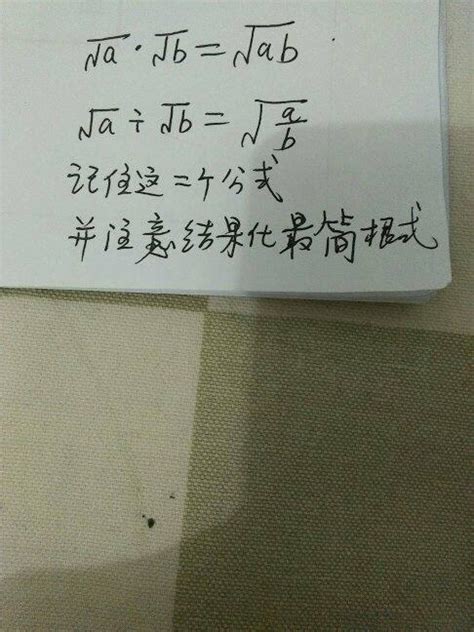 √a · √b = √ab
√a ÷ √b = √(a/b)
记住这二个公式
并注意结果化最简根式